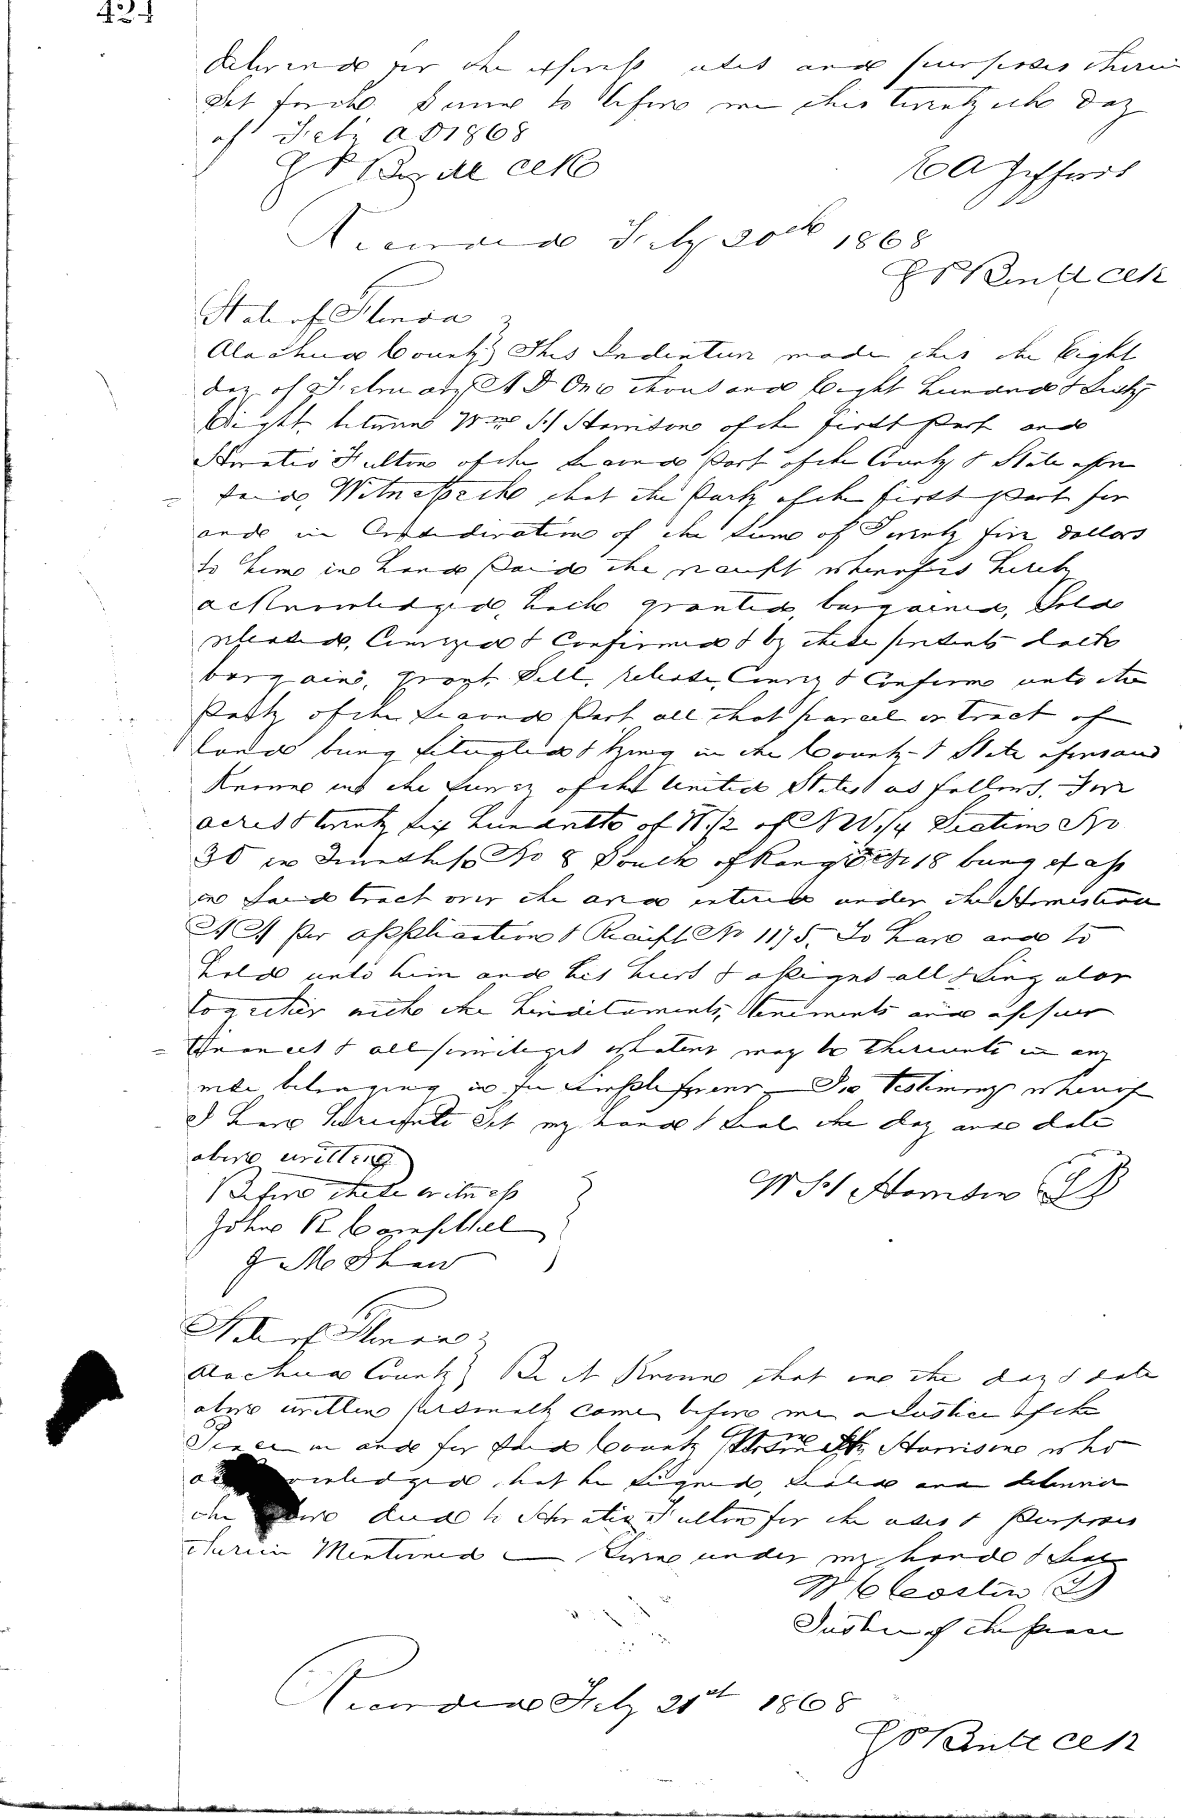 424
for the express uses and purposes therein
set forth. Sworn to before me this twentyeth day
of Feby A D 1868
Recorded Feby 20th 1868
State of Florida
Alachua County } This Indenture made this the Eight
day of February A D One thousand Eight hundred & Sixty
Eight between Wm H Harrison of the first Part and
Horatio Fulton of the Second Part of the County & State afore
said, Witnesseth that the Party of the first Part for
and in Consideration of the sum of Twenty five dollars
to him in hand Paid the receipt whereof is hereby
acknowledged, hath granted, bargained, Sold
released, Conveyed & Confirmed & by these presents doth
bargain, grant, Sell, release, Convey & Confirm unto the
Party of the Second Part all that parcel or tract of
land being situated & lying in the County & State aforesaid
Known in the Survey of the United States as follows.
acres & twenty six hundredths of W 1/2 of NW 1/4 Section No
30 in Township No 8 South of Range No 18 being excess
in said tract over the area entered under the Homestead
Act per application & Receipt No 1175. To have and to
hold unto him and his heirs & assigns all & Singular
together with the hereditaments, tenements and appur
tenances & all privileges whatever may be thereunto in any
wise belonging in fee simple forever — In testimony whereof
I have hereunto Set my hand & Seal the day and date
above written
Before these witness
John R Campbell
J M Shaw
W H Harrison
State of Florida
Alachua County } Be it Known that on the day & date
above written personally came before me a Justice of the
Peace in and for said County Wm H Harrison who
that he signed, sealed and delivered
the above deed to Horatio Fulton for the uses & Purposes
therein Mentioned — Given under my hand & Seal
Justice of the peace
Recorded Feby 21st 1868